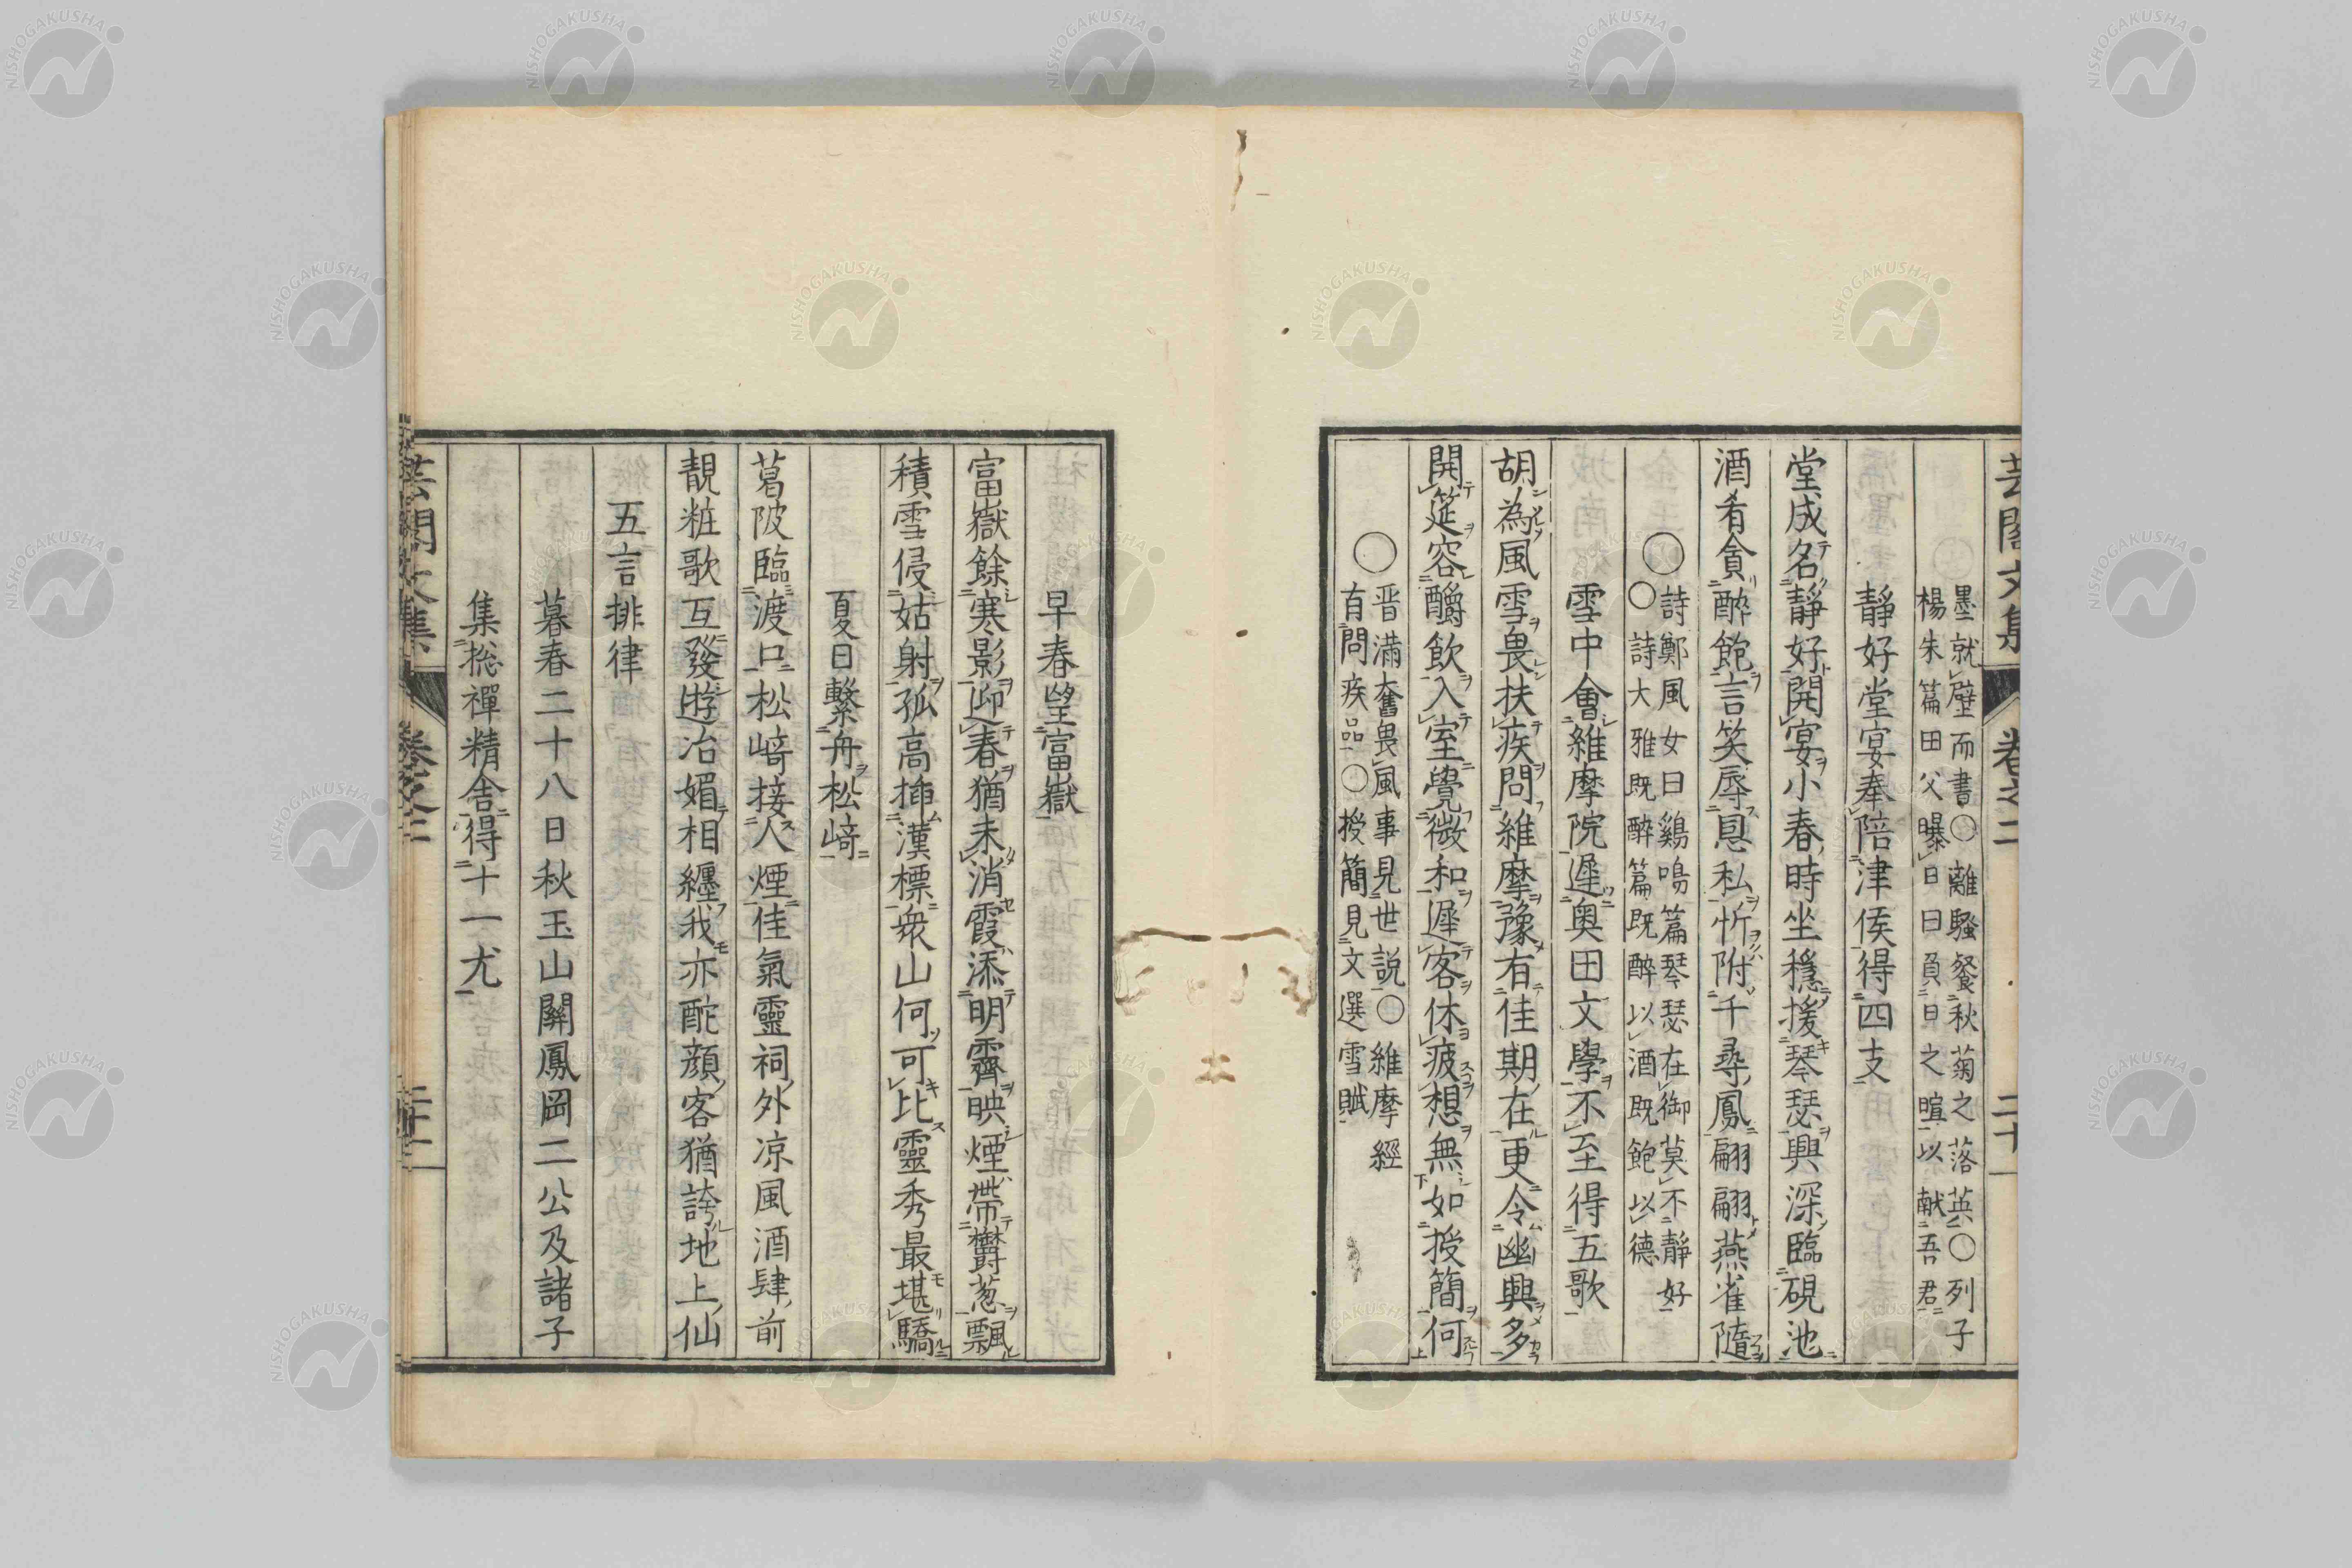 芸閣文集 卷之二 二十一
墨就壁而書〇離騷餐秋菊之落英〇列子
楊朱篇田父曝日曰負日之暄以献吾君
靜好堂宴奉陪津侯得四支
堂成名靜好開宴小春時坐穩援琴瑟興深臨硯池
酒肴貪醉飽言笑辱恩私忻附千尋鳳翩翩燕雀隨
〇詩鄭風女曰鷄鳴篇琴瑟在御莫不靜好
〇詩大雅既醉篇既醉以酒既飽以德
雪中會維摩院遲奥田文學不至得五歌
胡為風雪畏扶疾問維摩豫有佳期在更令幽興多
開筵容釂飲入室覺微和遲客休疲想無如授簡何
〇晋滿奮畏風事見世說〇維摩經
有問疾品〇授簡見文選雪賦
早春望富嶽
富嶽餘寒影迎春猶未消霞添明霽映煙帶欝葱飄
積雪侵姑射孤高挿漢標衆山何可比靈秀最堪驕
夏日繫舟松﨑
葛陂臨渡口松﨑接人煙佳氣靈祠外凉風酒肆前
靚粧歌互發遊冶媚相纏我亦酡顔客猶誇地上仙
五言排律
暮春二十八日秋玉山關鳳岡二公及諸子
集捴禪精舎得十一尤
芸閣文集 卷之二
NISHOGAKUSHA